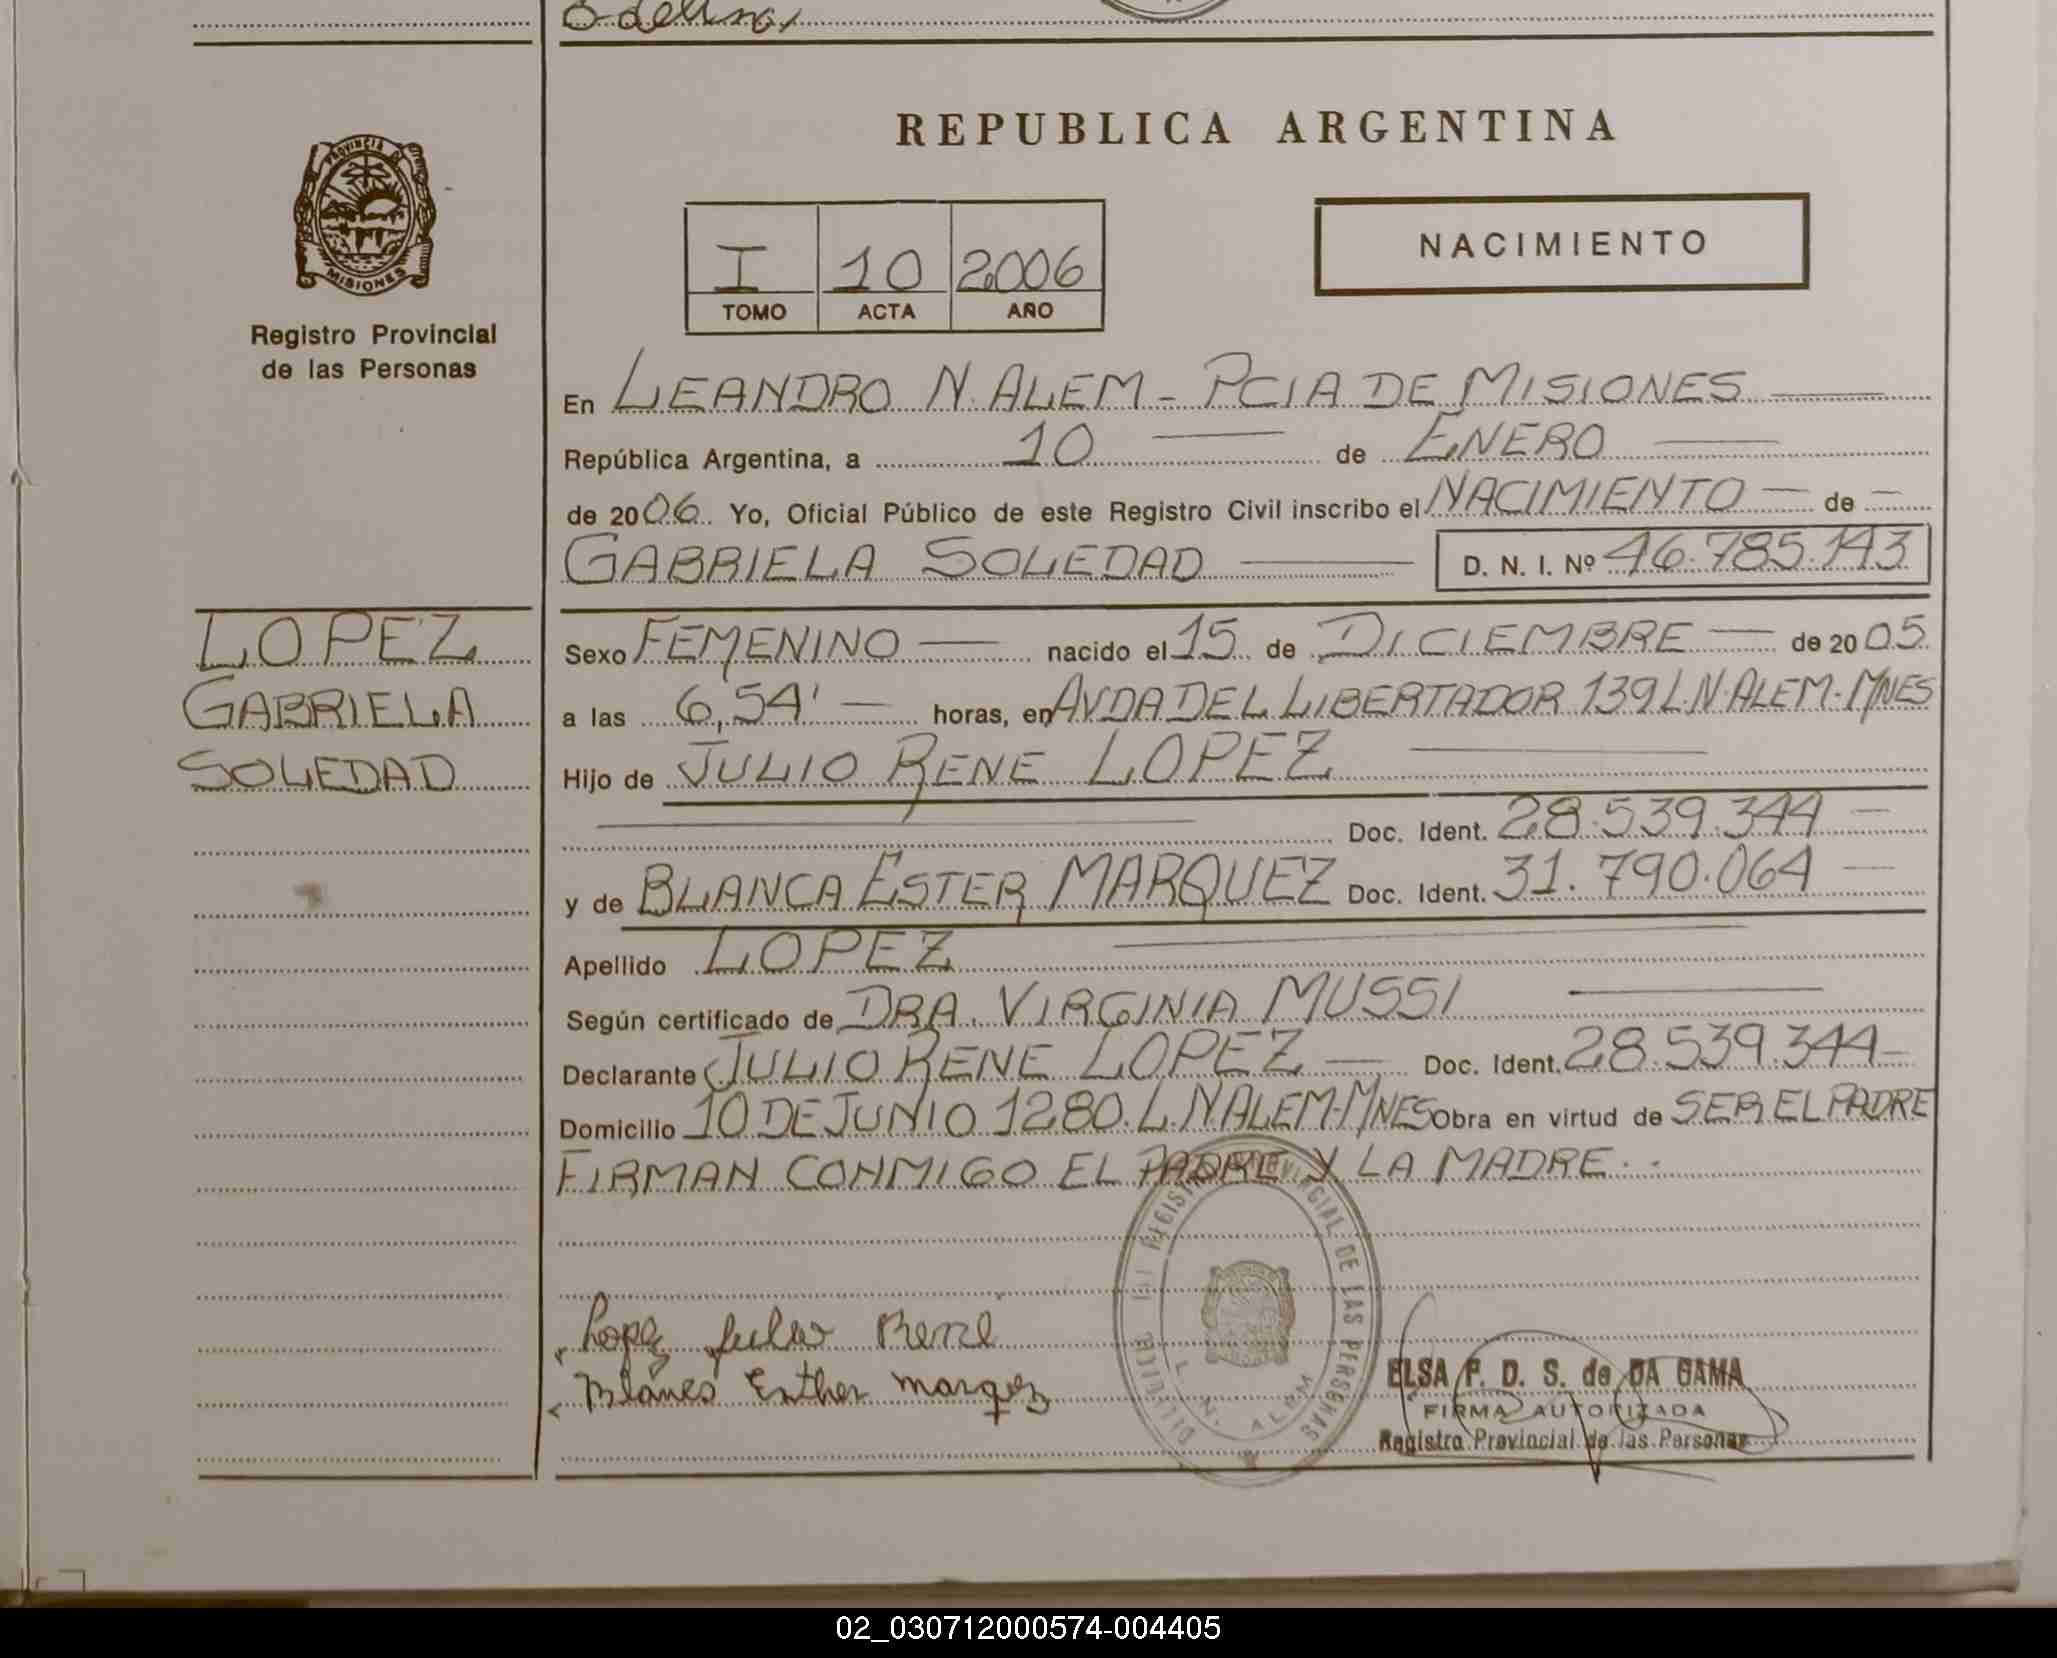 Odelina,
REPUBLICA ARGENTINA
PROVINCIA DE
MISIONES
Registro Provincial
de las Personas
I 10 2006
TOMO ACTA AÑO
NACIMIENTO
En LEANDRO N. ALEM - PCIA DE MISIONES
República Argentina, a 10 de ENERO
de 2006. Yo, Oficial Público de este Registro Civil inscribo el NACIMIENTO de
GABRIELA SOLEDAD D. N. I. Nº 46.785.143
LOPEZ
GABRIELA
SOLEDAD
Sexo FEMENINO nacido el 15 de DICIEMBRE de 2005
a las 6,54' horas, en AVDA DEL LIBERTADOR 139 L.N.ALEM-MNES
Hijo de JULIO RENE LOPEZ
Doc. Ident. 28.539.344
y de BLANCA ESTER MARQUEZ Doc. Ident. 31.790.064
Apellido LOPEZ
Según certificado de DRA. VIRGINIA MUSSI
Declarante JULIO RENE LOPEZ Doc. Ident. 28.539.344
Domicilio 10 DE JUNIO 1280. L.N.ALEM-MNES Obra en virtud de SER EL PADRE
FIRMAN CONMIGO EL PADRE Y LA MADRE..
Lopez Julio Rene
Blanca Esther Marquez
PROVINCIAL DE LAS PERSONAS
L. N. ALEM
ELSA P. D. S. de DA GAMA
FIRMA AUTORIZADA
Registro Provincial de las Personas
02_030712000574-004405